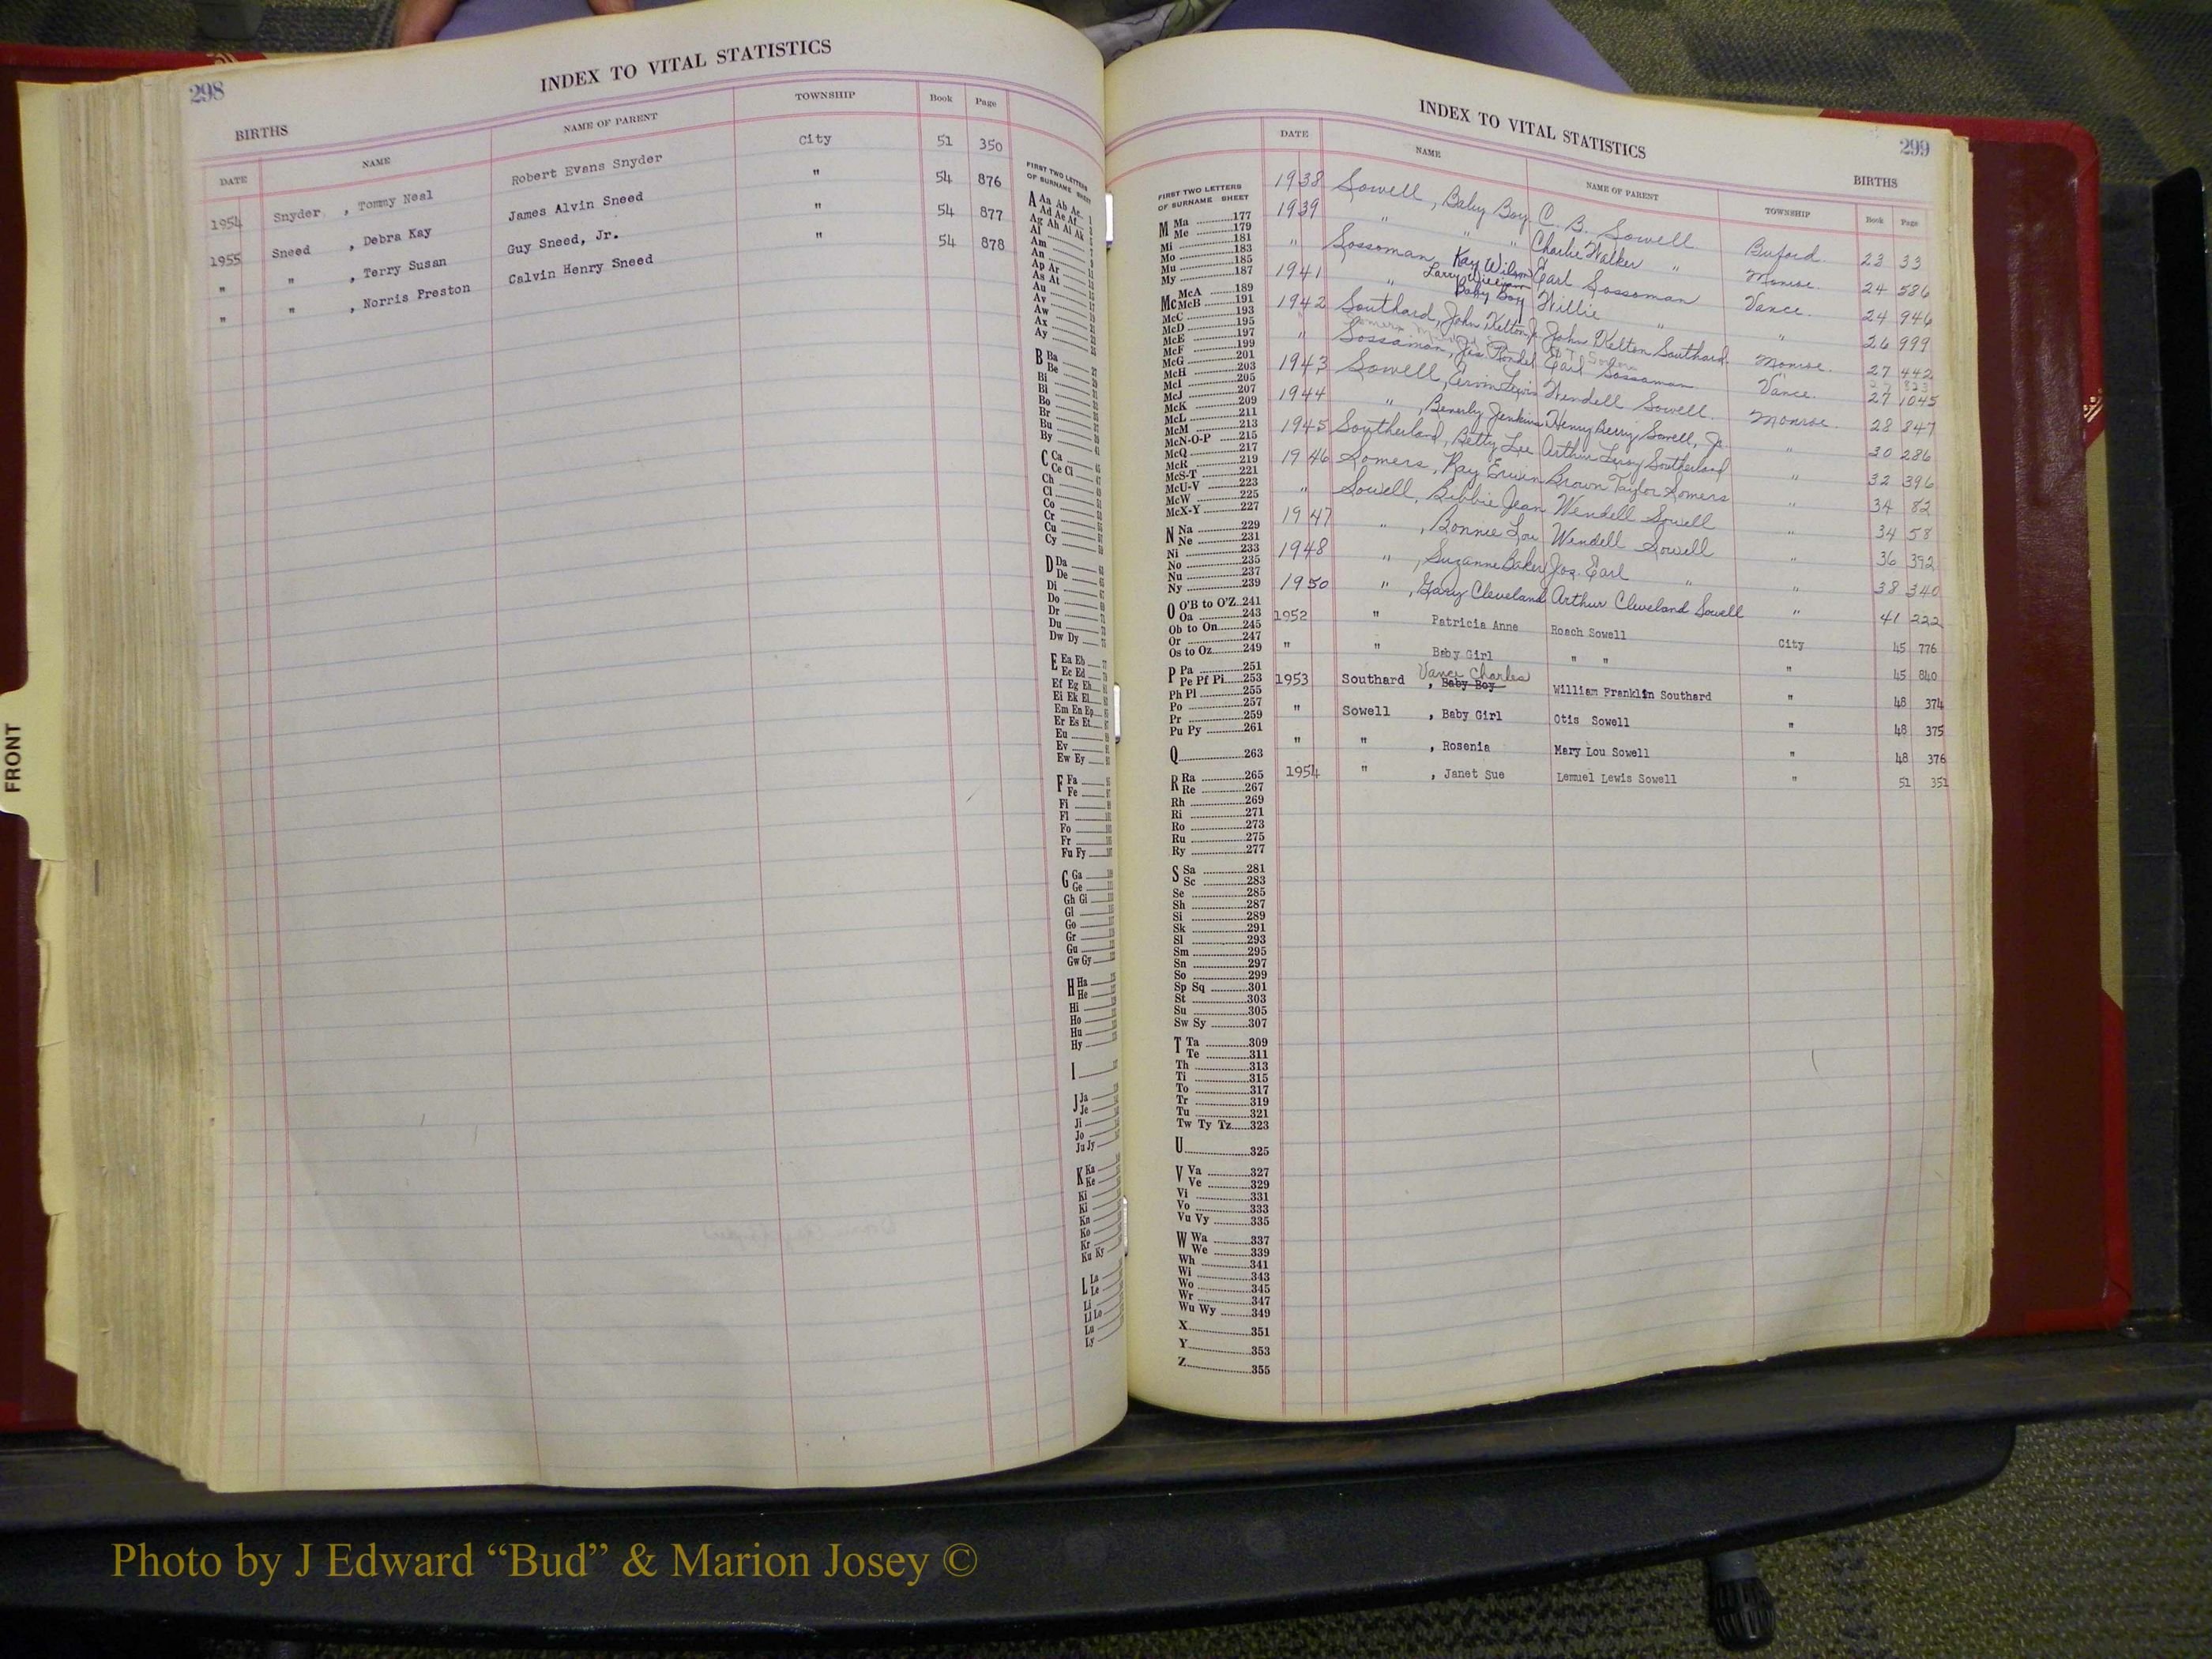 298
INDEX TO VITAL STATISTICS
BIRTHS
DATE NAME NAME OF PARENT TOWNSHIP Book Page
1954 Snyder , Tommy Neal Robert Evans Snyder City 51 350
1955 Sneed , Debra Kay James Alvin Sneed " 54 876
" " , Terry Susan Guy Sneed, Jr. " 54 877
" " , Norris Preston Calvin Henry Sneed " 54 878
FIRST TWO LETTERS
OF SURNAME SHEET
A Aa Ab Ac
Ad Ae Af
Ag Ah Ai Ak
Al
Am
An
Ap Ar
As At
Au
Av
Aw
Ax
Ay
B Ba
Be
Bi
Bl
Bo
Br
Bu
By
C Ca
Ce Ci
Ch
Cl
Co
Cr
Cu
Cy
D Da
De
Di
Do
Dr
Du
Dw Dy
E Ea Eb
Ec Ed
Ef Eg Eh
Ei Ek El
Em En Ep
Er Es Et
Eu
Ev
Ew Ey
F Fa
Fe
Fi
Fl
Fo
Fr
Fu Fy
G Ga
Ge
Gh Gi
Gl
Go
Gr
Gu
Gw Gy
H Ha
He
Hi
Ho
Hu
Hy
I
J Ja
Je
Ji
Jo
Ju Jy
K Ka
Ke
Ki
Kl
Kn
Ko
Kr
Ku Ky
L La
Le
Li
Ll Lo
Lu
Ly
FRONT
INDEX TO VITAL STATISTICS
299
BIRTHS
DATE NAME NAME OF PARENT TOWNSHIP Book Page
1938 Sowell, Baby Boy C. B. Sowell Buford 23 33
1939 " " " Charlie Walker " Monroe 24 586
" Sossoman, Kay Wilson Earl Sossoman Vance 24 946
Larry William
1941 " Baby Boy Willie " " 26 999
1942 Southard, John Kelton Jr John Kelton Southard Monroe 27 442
" Sossaman, Jas. Rondel Earl Sossaman Vance 27 1045
1943 Sowell, Ervin Lewis Wendell Sowell Monroe 28 847
1944 " , Beverly Jenkins Henry Berry Sowell, Jr " 30 286
1945 Southerland, Betty Lee Arthur Leroy Southerland " 32 396
1946 Somers, Ray Erwin Brown Taylor Somers " 34 82
" Sowell, Bibbie Jean Wendell Sowell " 34 58
1947 " , Bonnie Lou Wendell Sowell " 36 392
1948 " , Suzanne Baker Jas. Earl " " 38 340
1950 " , Gary Cleveland Arthur Cleveland Sowell " 41 222
1952 " Patricia Anne Roach Sowell City 45 776
" " Baby Girl " " " 45 840
Vance Charles
1953 Southard , Baby Boy William Franklin Southard " 48 374
" Sowell , Baby Girl Otis Sowell " 48 375
" " , Rosenia Mary Lou Sowell " 48 376
1954 " , Janet Sue Lemuel Lewis Sowell " 51 351
FIRST TWO LETTERS
OF SURNAME SHEET
M Ma 177
Me 179
Mi 181
Mo 183
Mu 185
My 187
Mc McA 189
McB 191
McC 193
McD 195
McE 197
McF 199
McG 201
McH 203
McI 205
McJ 207
McK 209
McL 211
McM 213
McN-O-P 215
McQ 217
McR 219
McS-T 221
McU-V 223
McW 225
McX-Y 227
N Na 229
Ne 231
Ni 233
No 235
Nu 237
Ny 239
O O'B to O'Z 241
Oa 243
Ob to On 245
Or 247
Os to Oz 249
P Pa 251
Pe Pf Pi 253
Ph Pl 255
Po 257
Pr 259
Pu Py 261
Q 263
R Ra 265
Re 267
Rh 269
Ri 271
Ro 273
Ru 275
Ry 277
S Sa 281
Sc 283
Se 285
Sh 287
Si 289
Sk 291
Sl 293
Sm 295
Sn 297
So 299
Sp Sq 301
St 303
Su 305
Sw Sy 307
T Ta 309
Te 311
Th 313
Ti 315
To 317
Tr 319
Tu 321
Tw Ty Tz 323
U 325
V Va 327
Ve 329
Vi 331
Vo 333
Vu Vy 335
W Wa 337
We 339
Wh 341
Wi 343
Wo 345
Wr 347
Wu Wy 349
X 351
Y 353
Z 355
Photo by J Edward “Bud” & Marion Josey ©